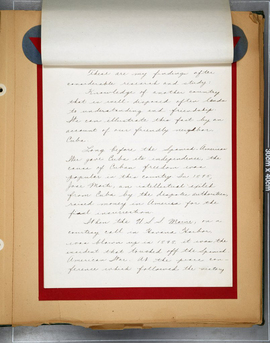 These are my findings after
considerable research and study.
Knowledge of another country
that is well disposed often leads
to understanding and friendship.
We can illustrate this fact by an
account of our friendly neighbor
Cuba.
Long before the Spanish American
War gave Cuba its independence, the
cause of Cuban freedom was
popular in this country. In 1895,
Jose Marti, an intellectual exiled
from Cuba by the Spanish authorities,
raised money in America for the
final insurrection.
When the U.S.S. Maine, on a
courtesy call in Havana Harbor
was blown up in 1898, it was the
incident that touched off the Spanish
American War. At the peace con-
ference which followed the victory